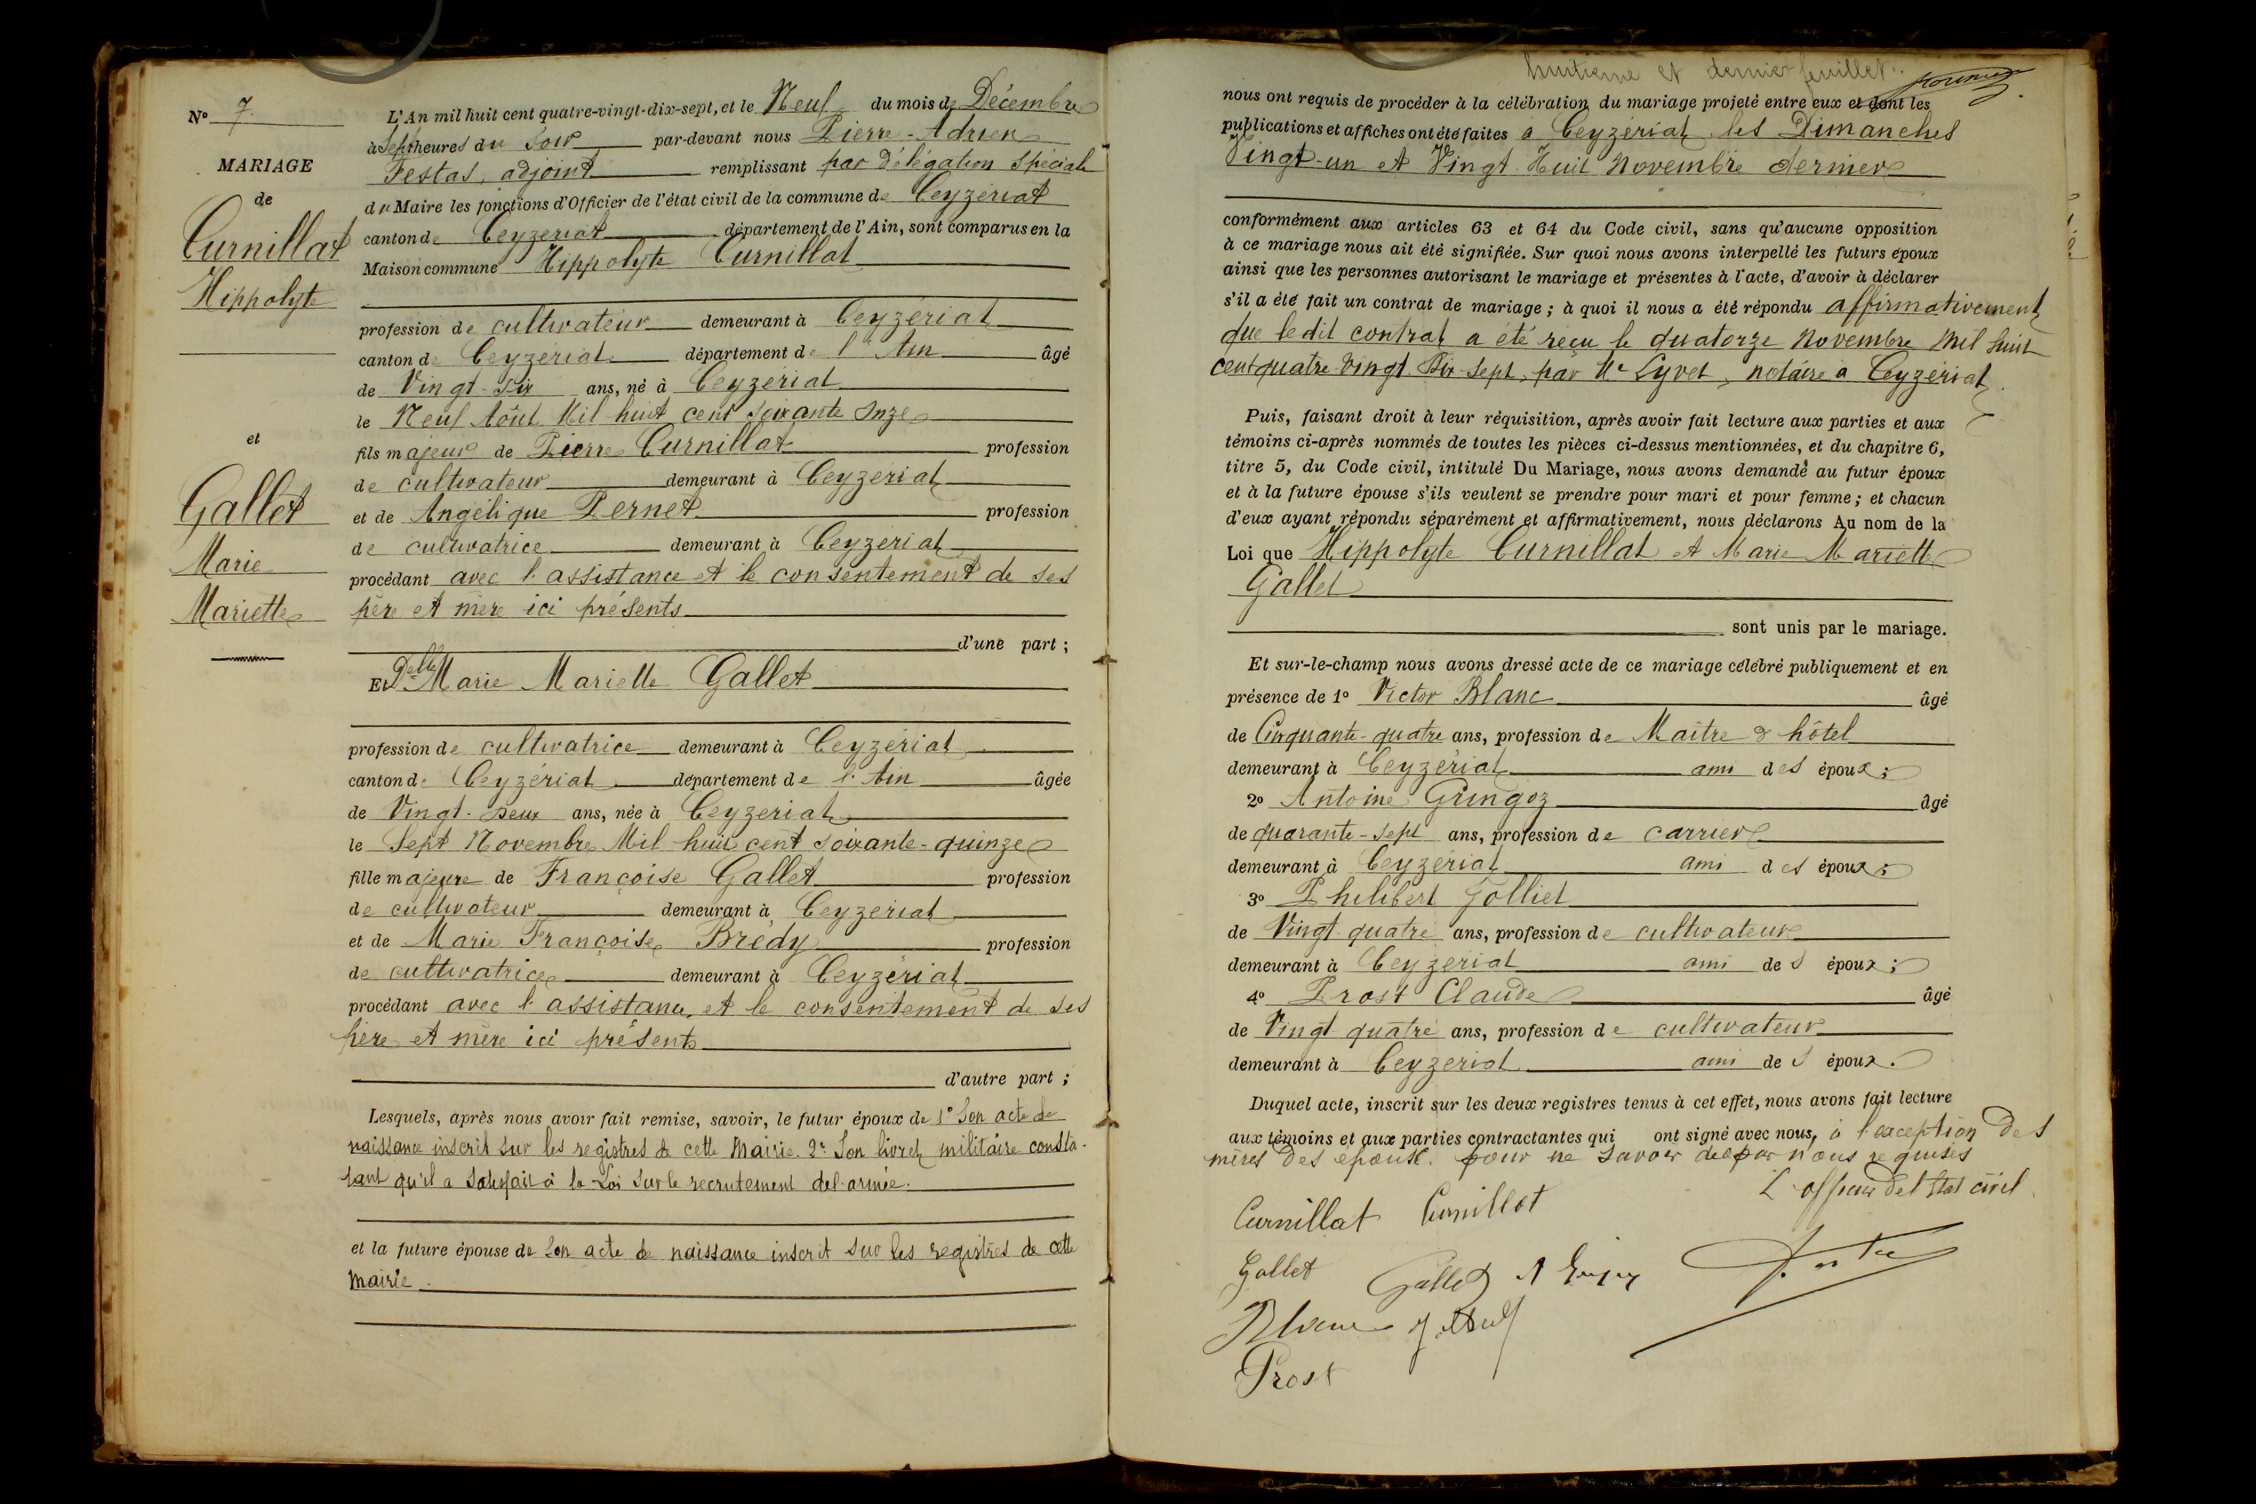 N° 7.
MARIAGE
de
Curnillat
Hippolyte
et
Gallet
Marie
Mariette
L'An mil huit cent quatre-vingt-dix-sept, et le Neuf du mois de Décembre
à Sept heures du Soir par-devant nous Pierre-Adrien
Festas, adjoint remplissant par délégation spéciale
du Maire les fonctions d'Officier de l'état civil de la commune de Ceyzériat
canton de Ceyzériat département de l'Ain, sont comparus en la
Maison commune Hippolyte Curnillat
profession de cultivateur demeurant à Ceyzériat
canton de Ceyzériat département de l'Ain âgé
de Vingt-six ans, né à Ceyzériat
le Neuf Août Mil huit cent soixante onze
fils majeur de Pierre Curnillat profession
de cultivateur demeurant à Ceyzériat
et de Angélique Pernet profession
de cultivatrice demeurant à Ceyzériat
procédant avec l'assistance et le consentement de ses
père et mère ici présents
d'une part ;
Et Delle Marie Mariette Gallet
profession de cultivatrice demeurant à Ceyzériat
canton de Ceyzériat département de l'Ain âgée
de Vingt-deux ans, née à Ceyzeriat
le Sept Novembre Mil huit cent soixante-quinze
fille majeure de Françoise Gallet profession
de cultivateur demeurant à Ceyzériat
et de Marie Françoise Brédy profession
de cultivatrice demeurant à Ceyzériat
procédant avec l'assistance et le consentement de ses
père et mère ici présents
d'autre part ;
Lesquels, après nous avoir fait remise, savoir, le futur époux de 1° Son acte de
naissance inscrit sur les registres de cette Mairie 2° Son livret militaire consta-
tant qu'il a satisfait à la Loi sur le recrutement de l'armée.
et la future épouse de Son acte de naissance inscrit sur les registres de cette
Mairie.
huitième et dernier feuillet.
nous ont requis de procéder à la célébration du mariage projeté entre eux et dont les
publications et affiches ont été faites à Ceyzériat les Dimanches
Vingt-un et Vingt-Huit Novembre dernier
conformément aux articles 63 et 64 du Code civil, sans qu'aucune opposition
à ce mariage nous ait été signifiée. Sur quoi nous avons interpellé les futurs époux
ainsi que les personnes autorisant le mariage et présentes à l'acte, d'avoir à déclarer
s'il a été fait un contrat de mariage ; à quoi il nous a été répondu affirmativement
que le dit contrat a été reçu le quatorze Novembre Mil huit
cent quatre-vingt Dix-sept, par Me Lyvet, notaire à Ceyzériat.
Puis, faisant droit à leur réquisition, après avoir fait lecture aux parties et aux
témoins ci-après nommés de toutes les pièces ci-dessus mentionnées, et du chapitre 6,
titre 5, du Code civil, intitulé Du Mariage, nous avons demandé au futur époux
et à la future épouse s'ils veulent se prendre pour mari et pour femme ; et chacun
d'eux ayant répondu séparément et affirmativement, nous déclarons Au nom de la
Loi que Hippolyte Curnillat et Marie Mariette
Gallet
sont unis par le mariage.
Et sur-le-champ nous avons dressé acte de ce mariage célébré publiquement et en
présence de 1° Victor Blanc âgé
de Cinquante-quatre ans, profession de Maître d'hôtel
demeurant à Ceyzériat ami des époux ;
2° Antoine Gringoz âgé
de quarante-sept ans, profession de carrier
demeurant à Ceyzériat ami des époux ;
3° Philibert Jolliet
de Vingt quatre ans, profession de cultivateur
demeurant à Ceyzériat ami des époux ;
4° Prost Claude âgé
de Vingt quatre ans, profession de cultivateur
demeurant à Ceyzeriat ami des époux.
Duquel acte, inscrit sur les deux registres tenus à cet effet, nous avons fait lecture
aux témoins et aux parties contractantes qui ont signé avec nous, à l'exception des
mères des époux. pour ne savoir de par nous requises
L'officier de l'Etat civil
Curnillat Curnillat
Gallet Gallet
Blanc
Prost